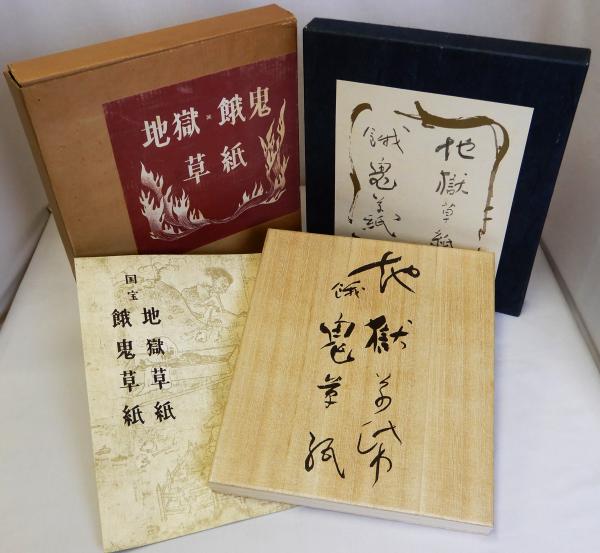 地獄・餓鬼
草紙
地獄草紙
餓鬼草紙
国宝
地獄草紙
餓鬼草紙
地獄草紙
餓鬼草紙